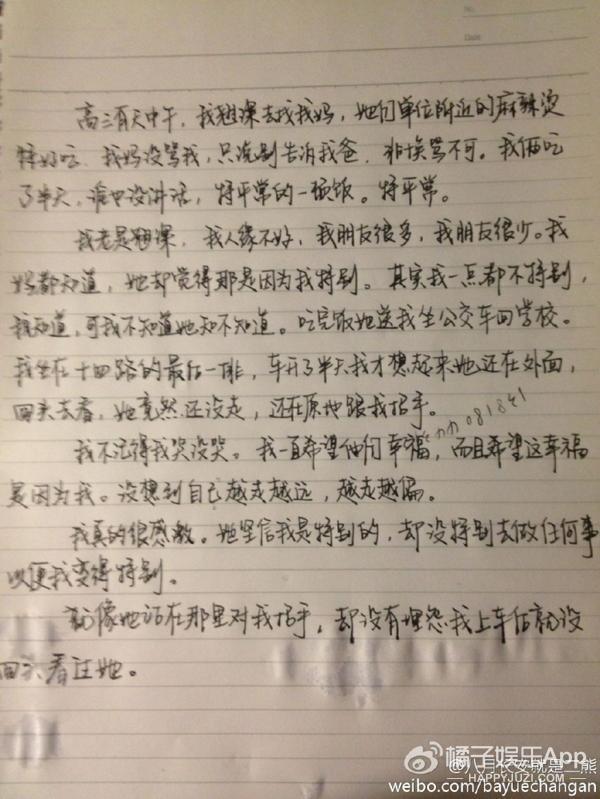 No.
Date
高三有天中午，我翘课去找我妈，她们单位附近的麻辣烫
特好吃。我妈没骂我，只说别告诉我爸，非挨骂不可。我俩吃
了半天，谁也没讲话，特平常的一顿饭。特平常。
我老是翘课，我人缘不好，我朋友很多，我朋友很少。我
妈都知道，她却觉得那是因为我特别。其实我一点都不特别，
我知道，可我不知道她知不知道。吃完饭她送我坐公交车回学校。
我坐在十四路的最后一排，车开了半天我才想起来她还在外面，
回头去看，她竟然还没走，还在原地跟我招手。
我不记得我哭没哭。我一直希望他们幸福，而且希望这幸福
是因为我。没想到自己越走越远，越走越偏。
我真的很感激。她坚信我是特别的，却没特别去做任何事
以便我变得特别。
就像她站在那里对我招手，却没有埋怨我上车后就没
回头看过她。
橘子娱乐App
@八月长安就是二熊
HAPPYJUZI.COM
weibo.com/bayuechangan